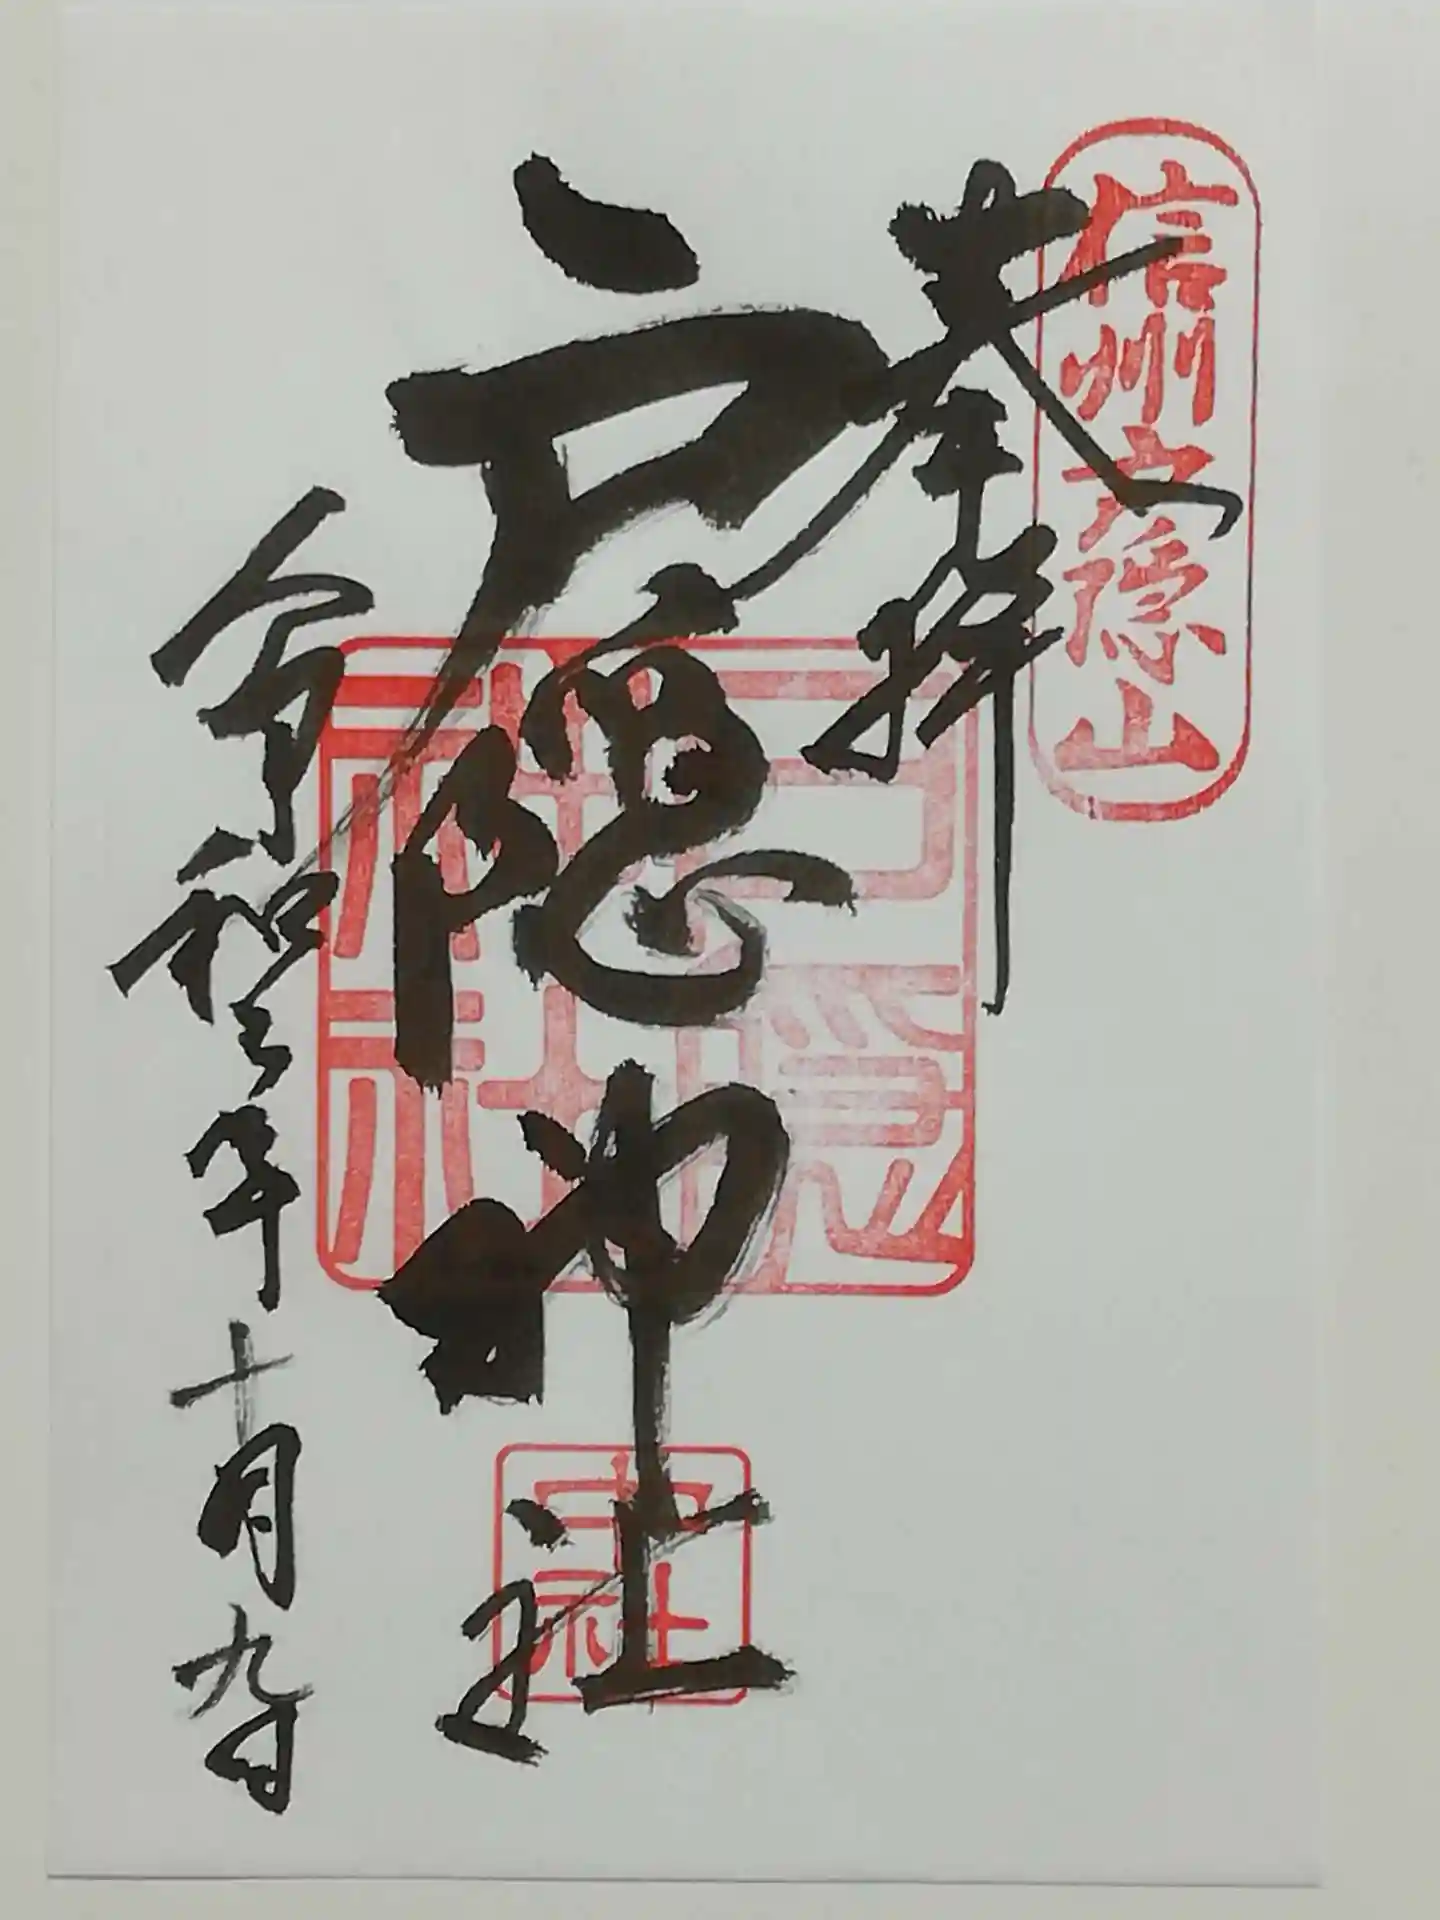 信州戸隠山
奉拝
戸隠神社
戸隠神社
令和三年十月九日